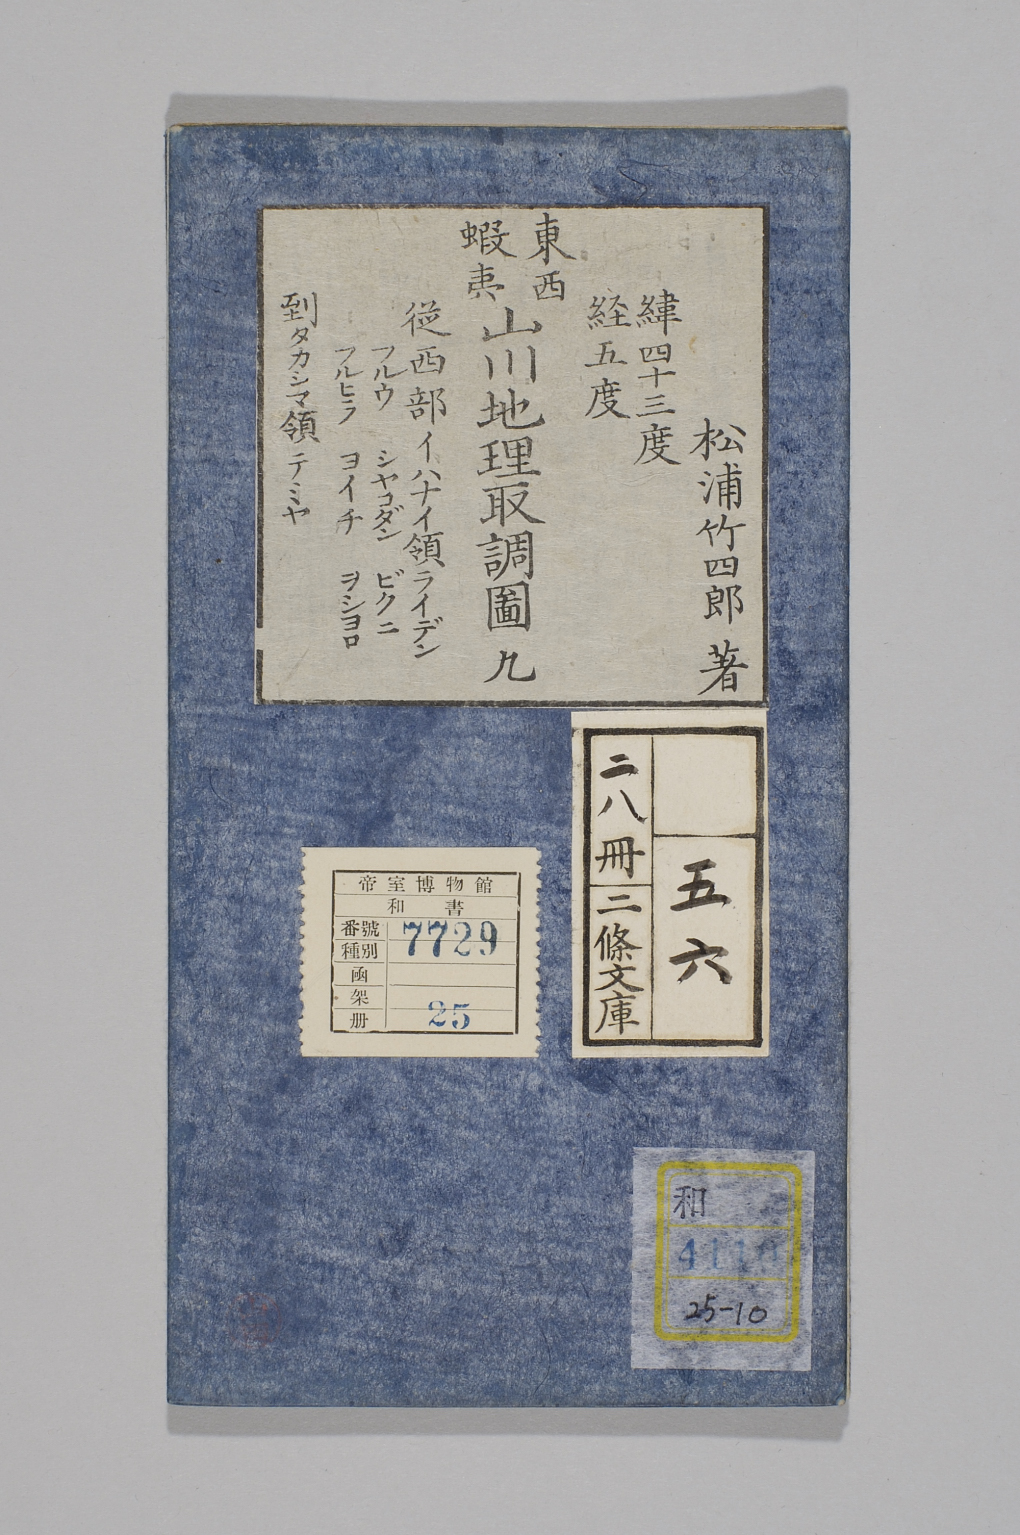 松浦竹四郎著
緯四十三度
経五度
東西
蝦夷
山川地理取調圖 九
従西部イハナイ領ライデン
フルウ シヤコダン ビクニ
フルヒラ ヨイチ ヲシヨロ
到タカシマ領テミヤ
五六
二八冊
二條文庫
帝室博物館
和書
番號 7729
種別
函
架
册 25
和
25-10